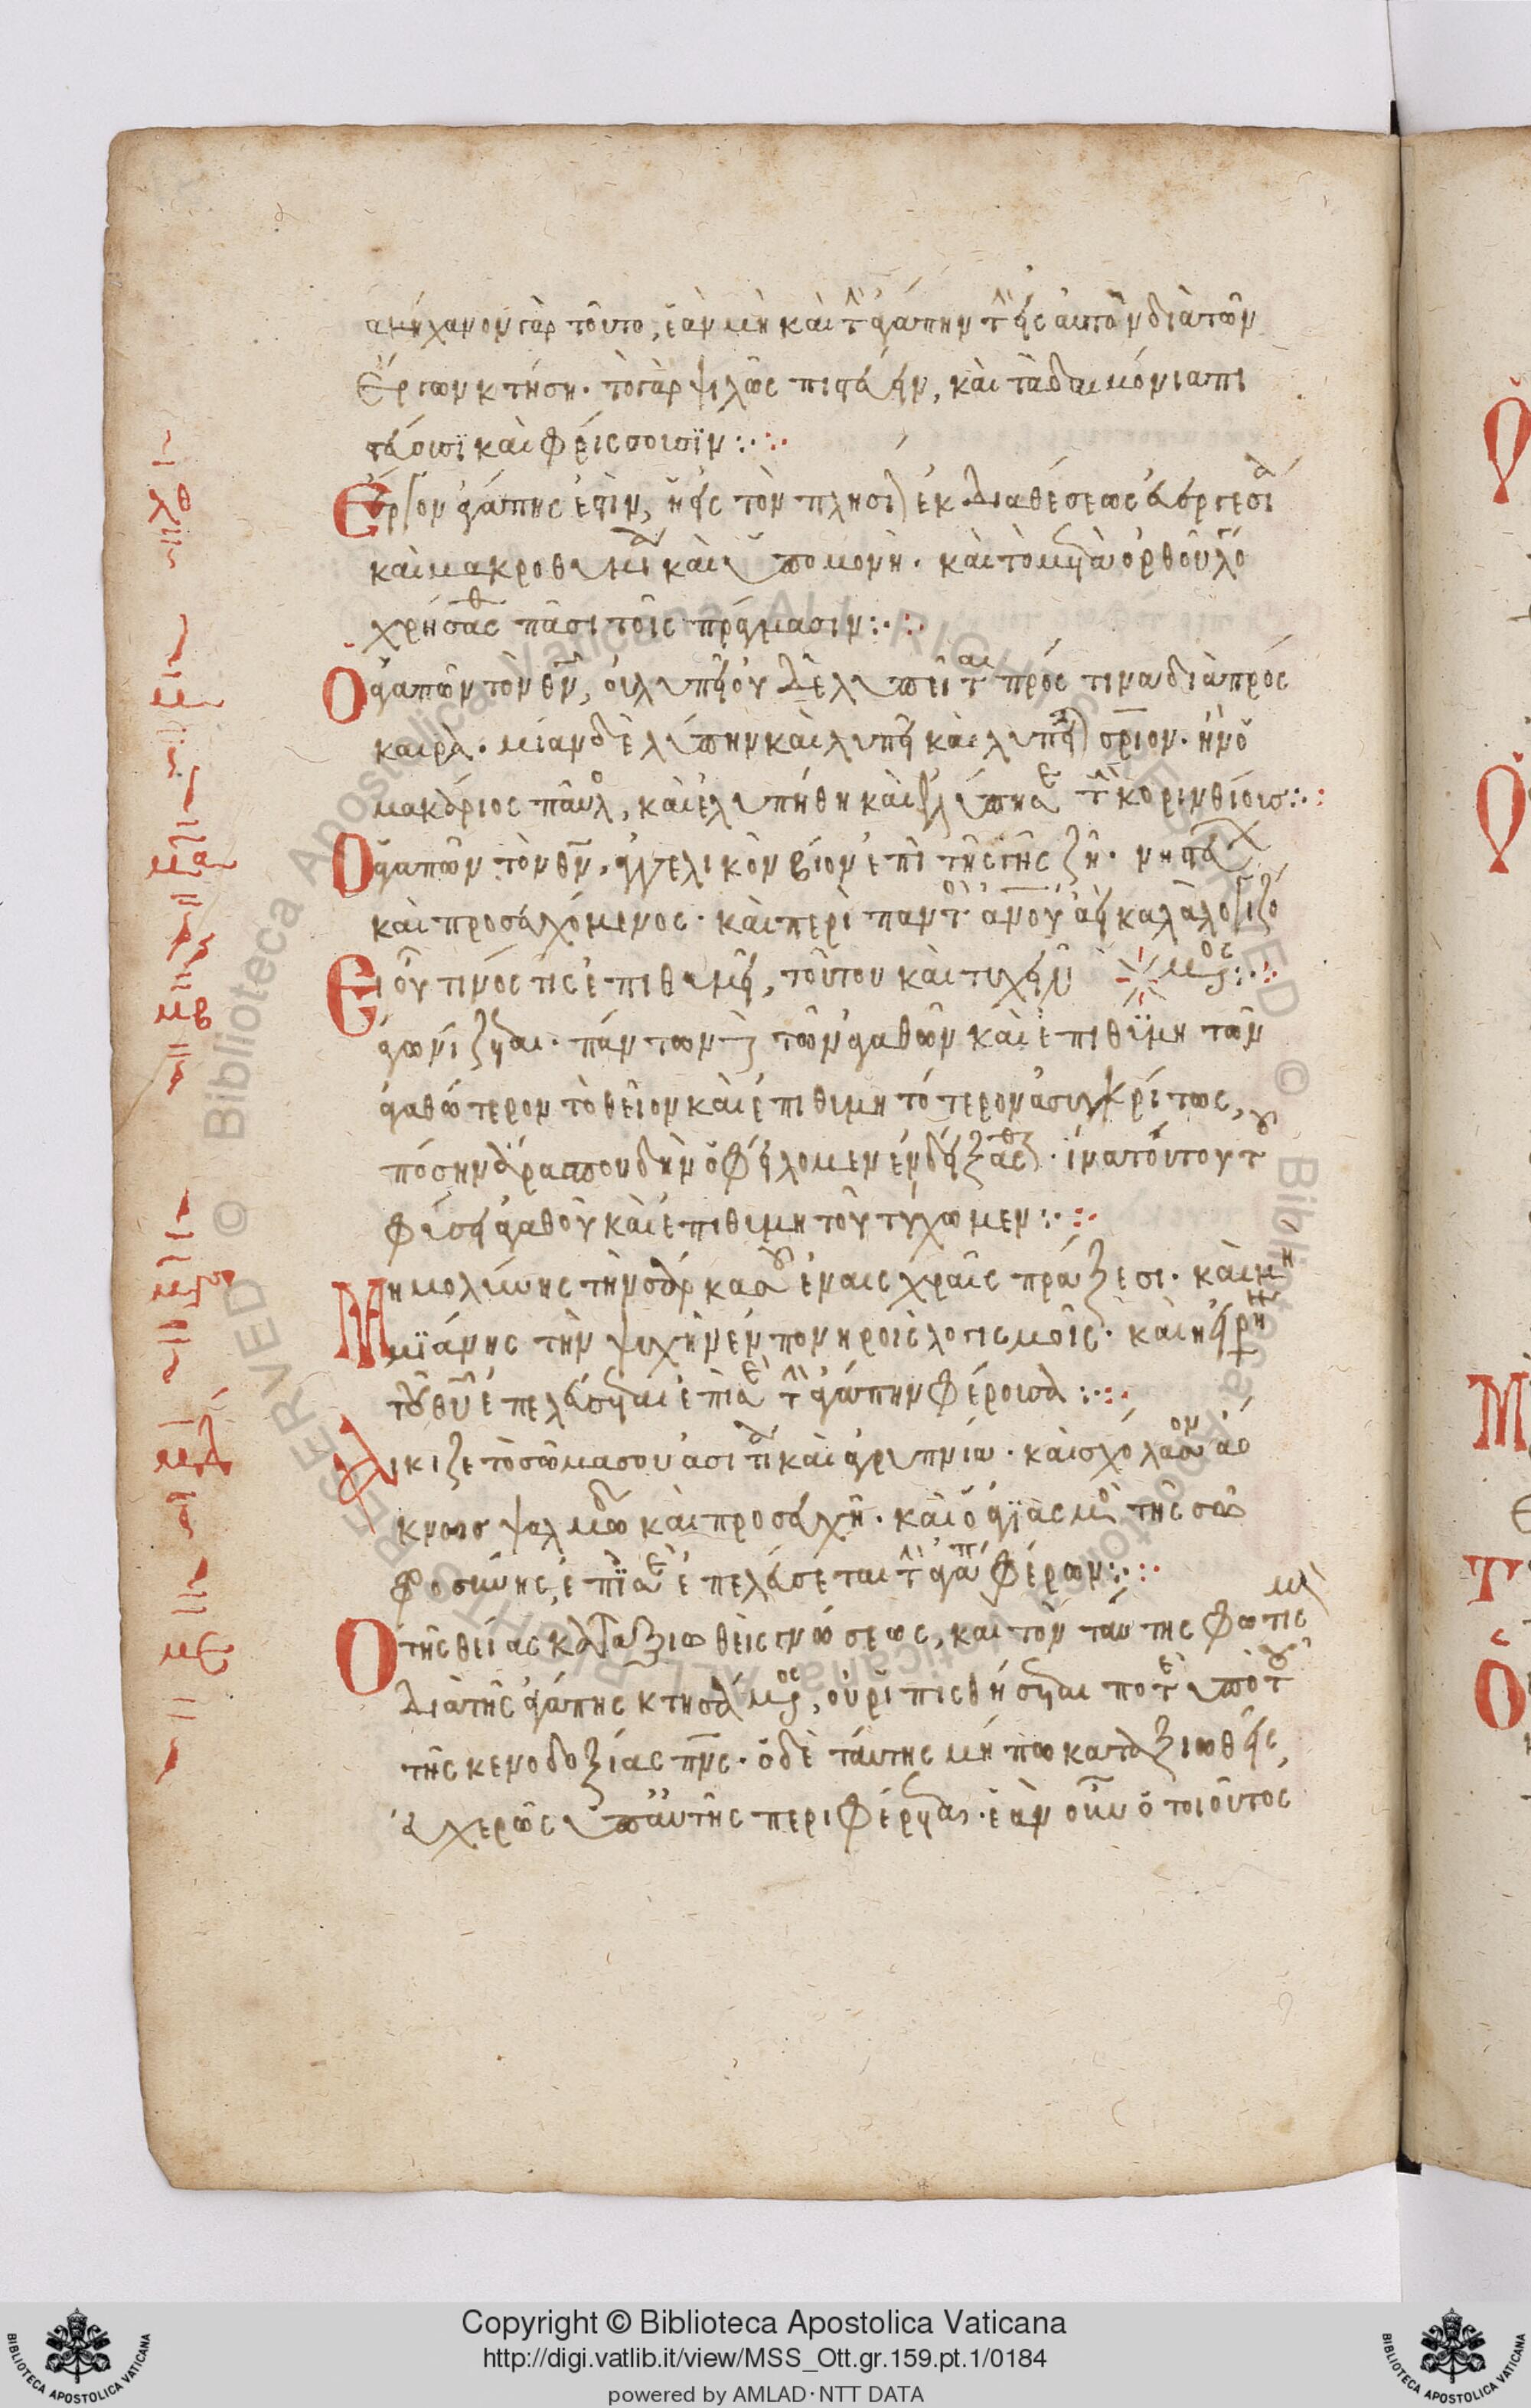 αμήχανον γὰρ τοῦτο, ἐὰν μὴ καὶ τὴν ἀγάπην τὴν εἰς αὐτὸν διὰ τῶν
ἔργων κτήση. τὸ γὰρ ψιλῶς πιστεύειν, καὶ τὰ δαιμόνια πι
στεύουσι καὶ φρίσσουσιν:·
Ἔργον ἀγάπης ἐστὶν, ἡ εἰς τὸν πλησίον ἐκ διαθέσεως εὐεργεσία
καὶ μακροθυμία καὶ ὑπομονὴ. καὶ τὸ μετὰ ὀρθοῦ λόγου
χρήσασθαι πᾶσι τοῖς πράγμασιν:·
Ὁ ἀγαπῶν τὸν θν, οὐ λυπεῖ οὐδὲ λυπεῖται πρός τινα διὰ πρόσ
καιρα. μίαν δὲ λύπην καὶ λυπεῖ καὶ λυπεῖται σριον. ἣν ὁ
μακάριος παῦλος, καὶ ἐλυπήθη καὶ ἐλύπησε τοὺς κορινθίους:·
Ὁ ἀγαπῶν τὸν θν, ἀγγελικὸν βίον ἐπὶ τῆς γῆς ζῆ. νηστεύων
καὶ προσευχόμενος. καὶ περὶ παντὸς ανου ἀεὶ καλὰ λογιζό
μενος:·
Εἰ οὗ τινός τις ἐπιθυμεῖ, τούτου καὶ τυχεῖν
ἀγωνίζεται. πάντων δὲ τῶν ἀγαθῶν καὶ ἐπιθυμητῶν
ἀγαθώτερον τὸ θεῖον καὶ ἐπιθυμητότερον ἀσυγκρίτως,
πόσην ἄρα σπουδὴν ὀφείλομεν ἐνδείξασθαι. ἵνα τούτου τοῦ
φύσει ἀγαθοῦ καὶ ἐπιθυμητοῦ τύχωμεν:·
Μὴ μολύνης τὴν σάρκα σου ἐν αἰσχραῖς πράξεσι. καὶ μὴ
μιάνης τὴν ψυχὴν ἐν πονηροῖς λογισμοῖς. καὶ ἡ εἰρήνη
τοῦ θυ ἐπελεύσεται ἐπὶ σὲ τὴν ἀγάπην φέρουσα:·
Αἴκιζε τὸ σῶμα σου ἀσιτία καὶ ἀγρυπνία. καὶ σχόλασον ἀό
κνως ψαλμωδία καὶ προσευχῆ. καὶ ὁ ἁγιασμὸς τῆς σω
φροσύνης, ἐπὶ σὲ ἐπελεύσεται τὴν ἀγάπην φέρων:·
Ὁ τῆς θείας καταξιωθεὶς γνώσεως, καὶ τὸν ταύτης φωτισμὸν
διὰ τῆς ἀγάπης κτησάμενος, οὐ ῥιπισθήσεται ποτὲ ὑπὸ τοῦ
τῆς κενοδοξίας πνς. ὁ δὲ ταύτης μήπω καταξιωθεὶς,
εὐχερῶς ὑπ' αὐτῆς περιφέρεται. ἐὰν οὖν ὁ τοιοῦτος
Copyright © Biblioteca Apostolica Vaticana
http://digi.vatlib.it/view/MSS_Ott.gr.159.pt.1/0184
powered by AMLAD·NTT DATA